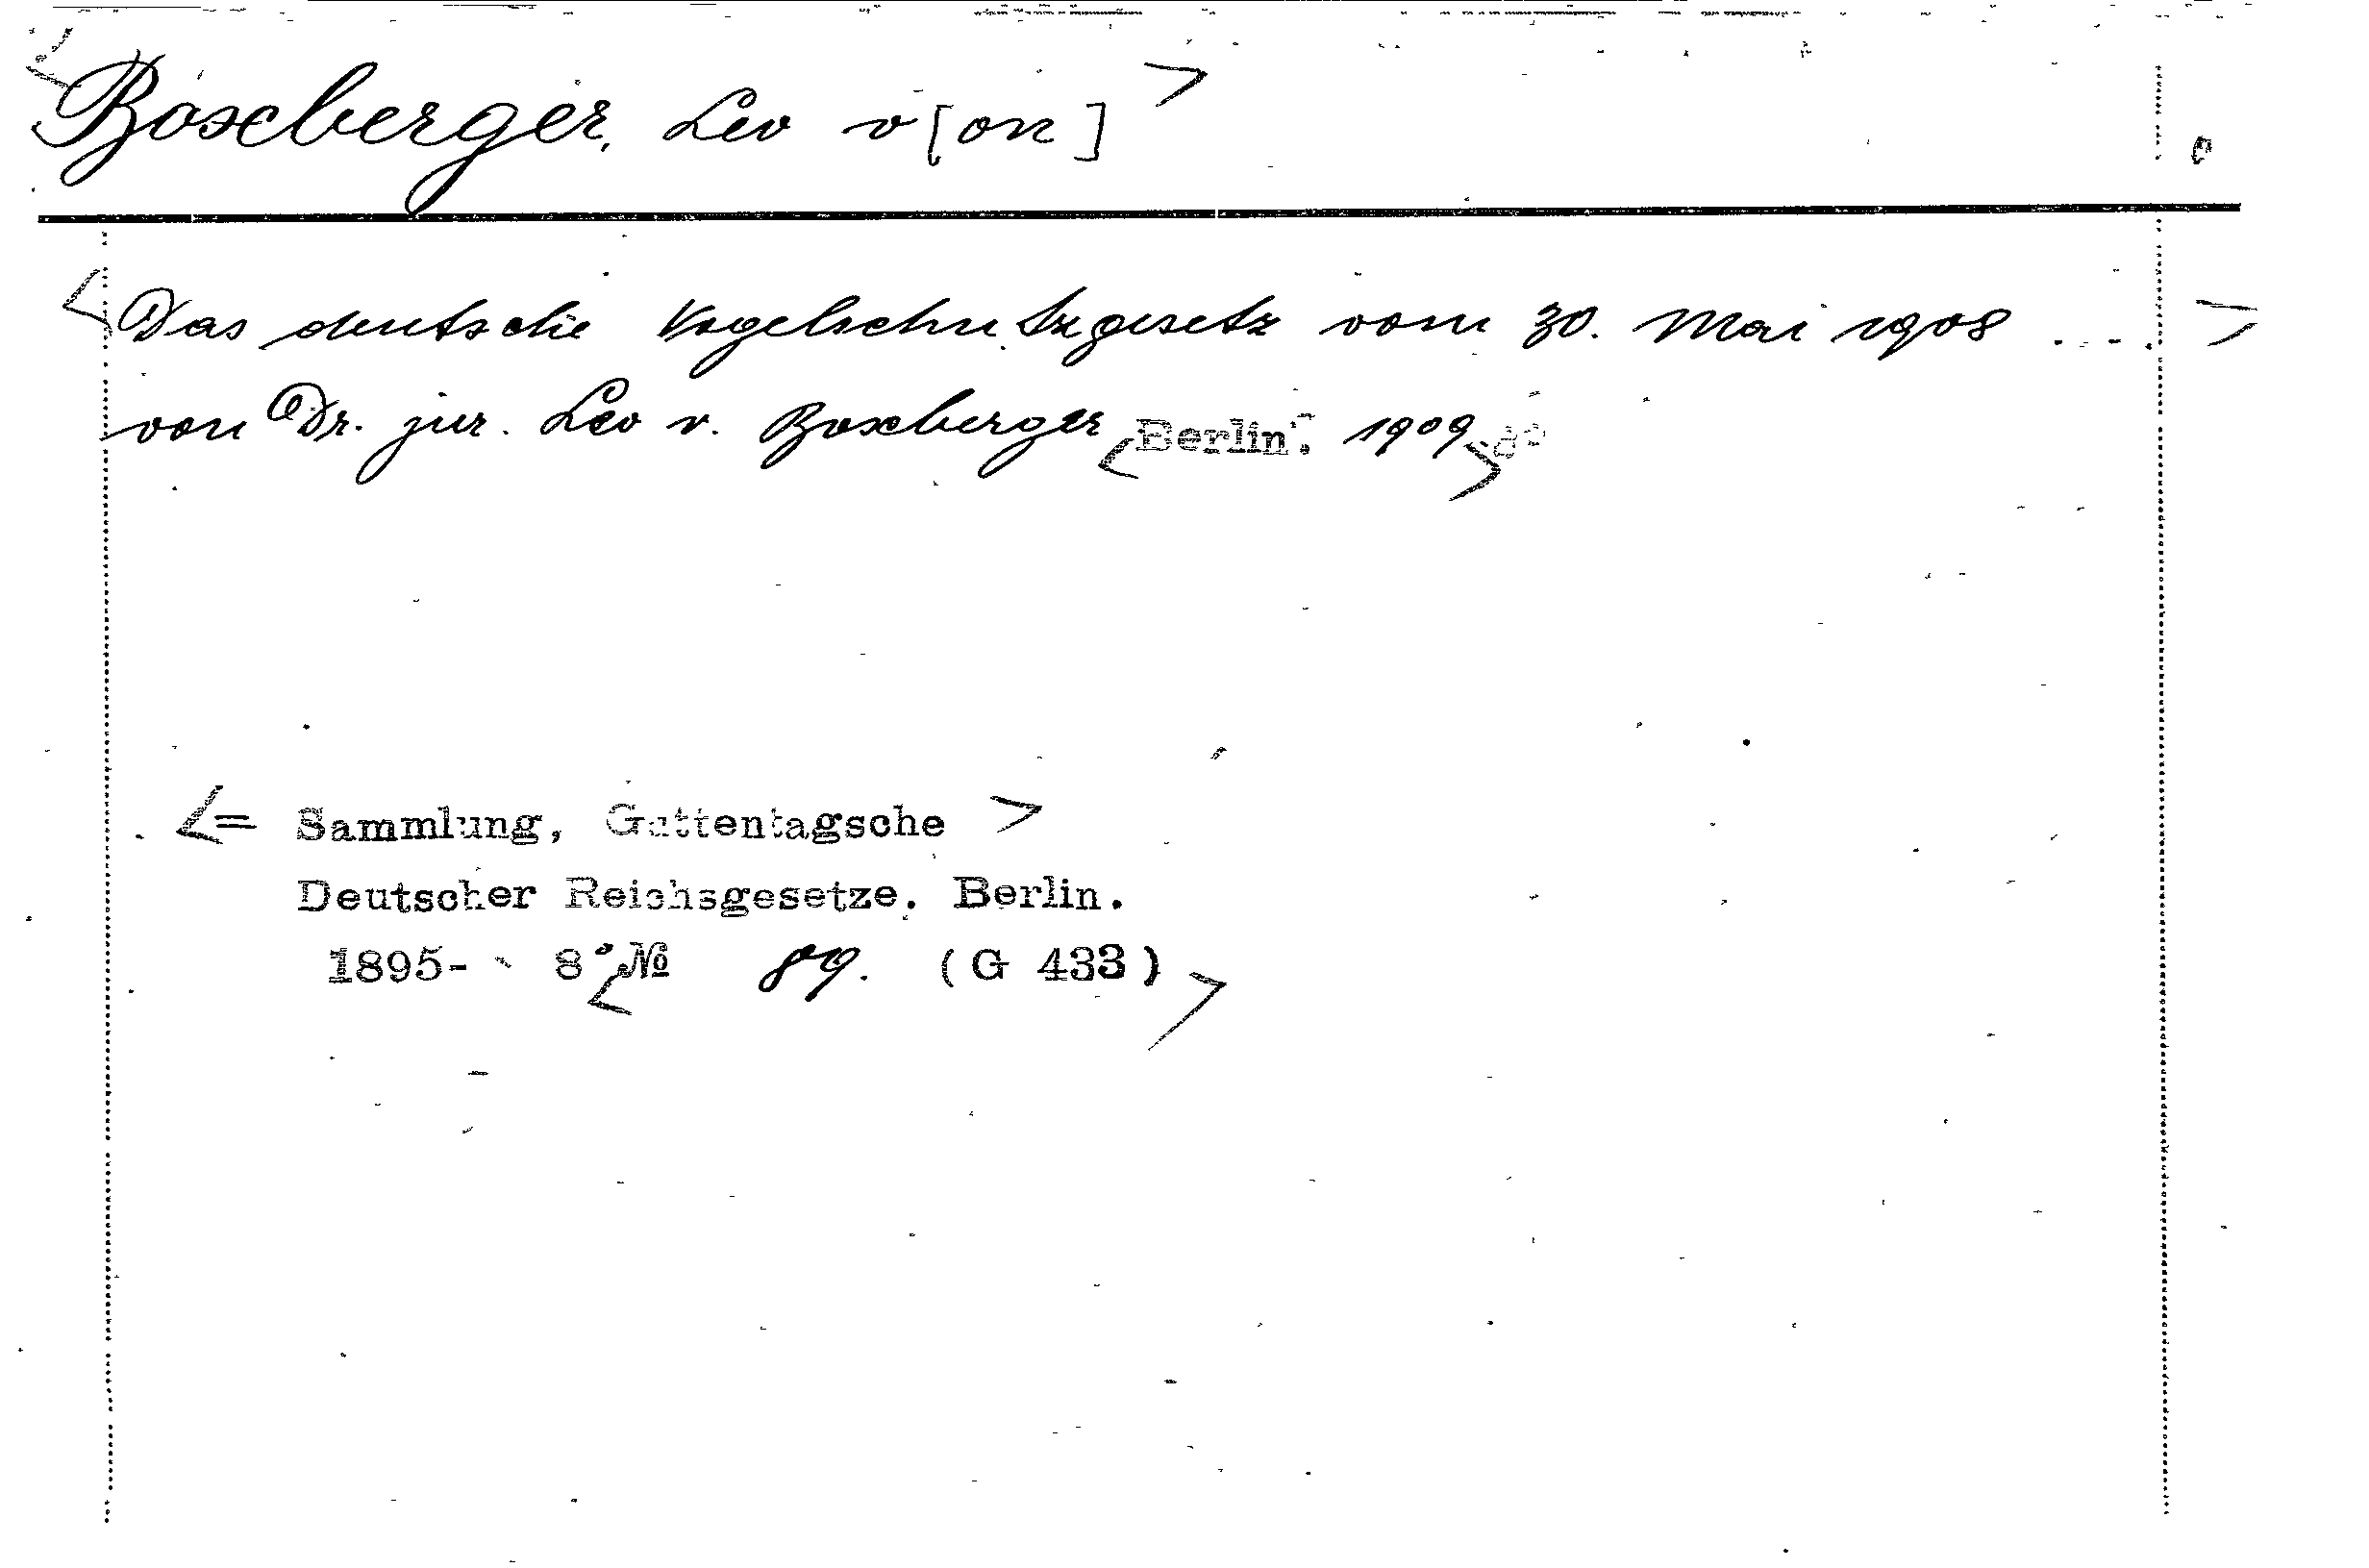 <Boxberger, Leo v[on]>
<Das deutsche Vogelschutzgesetz vom 30. Mai 1908 ....>
von Dr. jur. Leo v. Boxberger <Berlin. 1909.> 8°
<= Sammlung, Guttentagsche >
Deutscher Reichsgesetze. Berlin.
1895- 8° <№ 89. (G 433)>